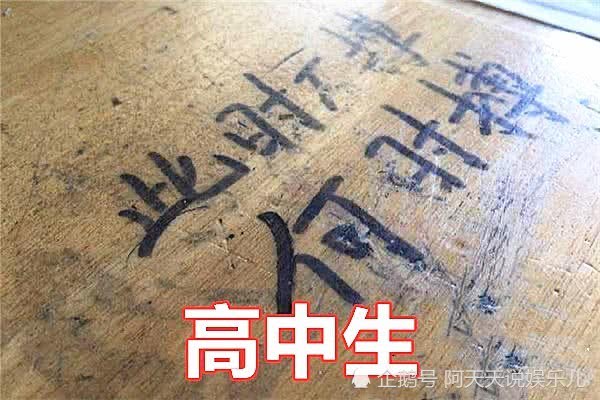 此时不搏
何时搏
高中生
企鹅号 阿天天说娱乐儿